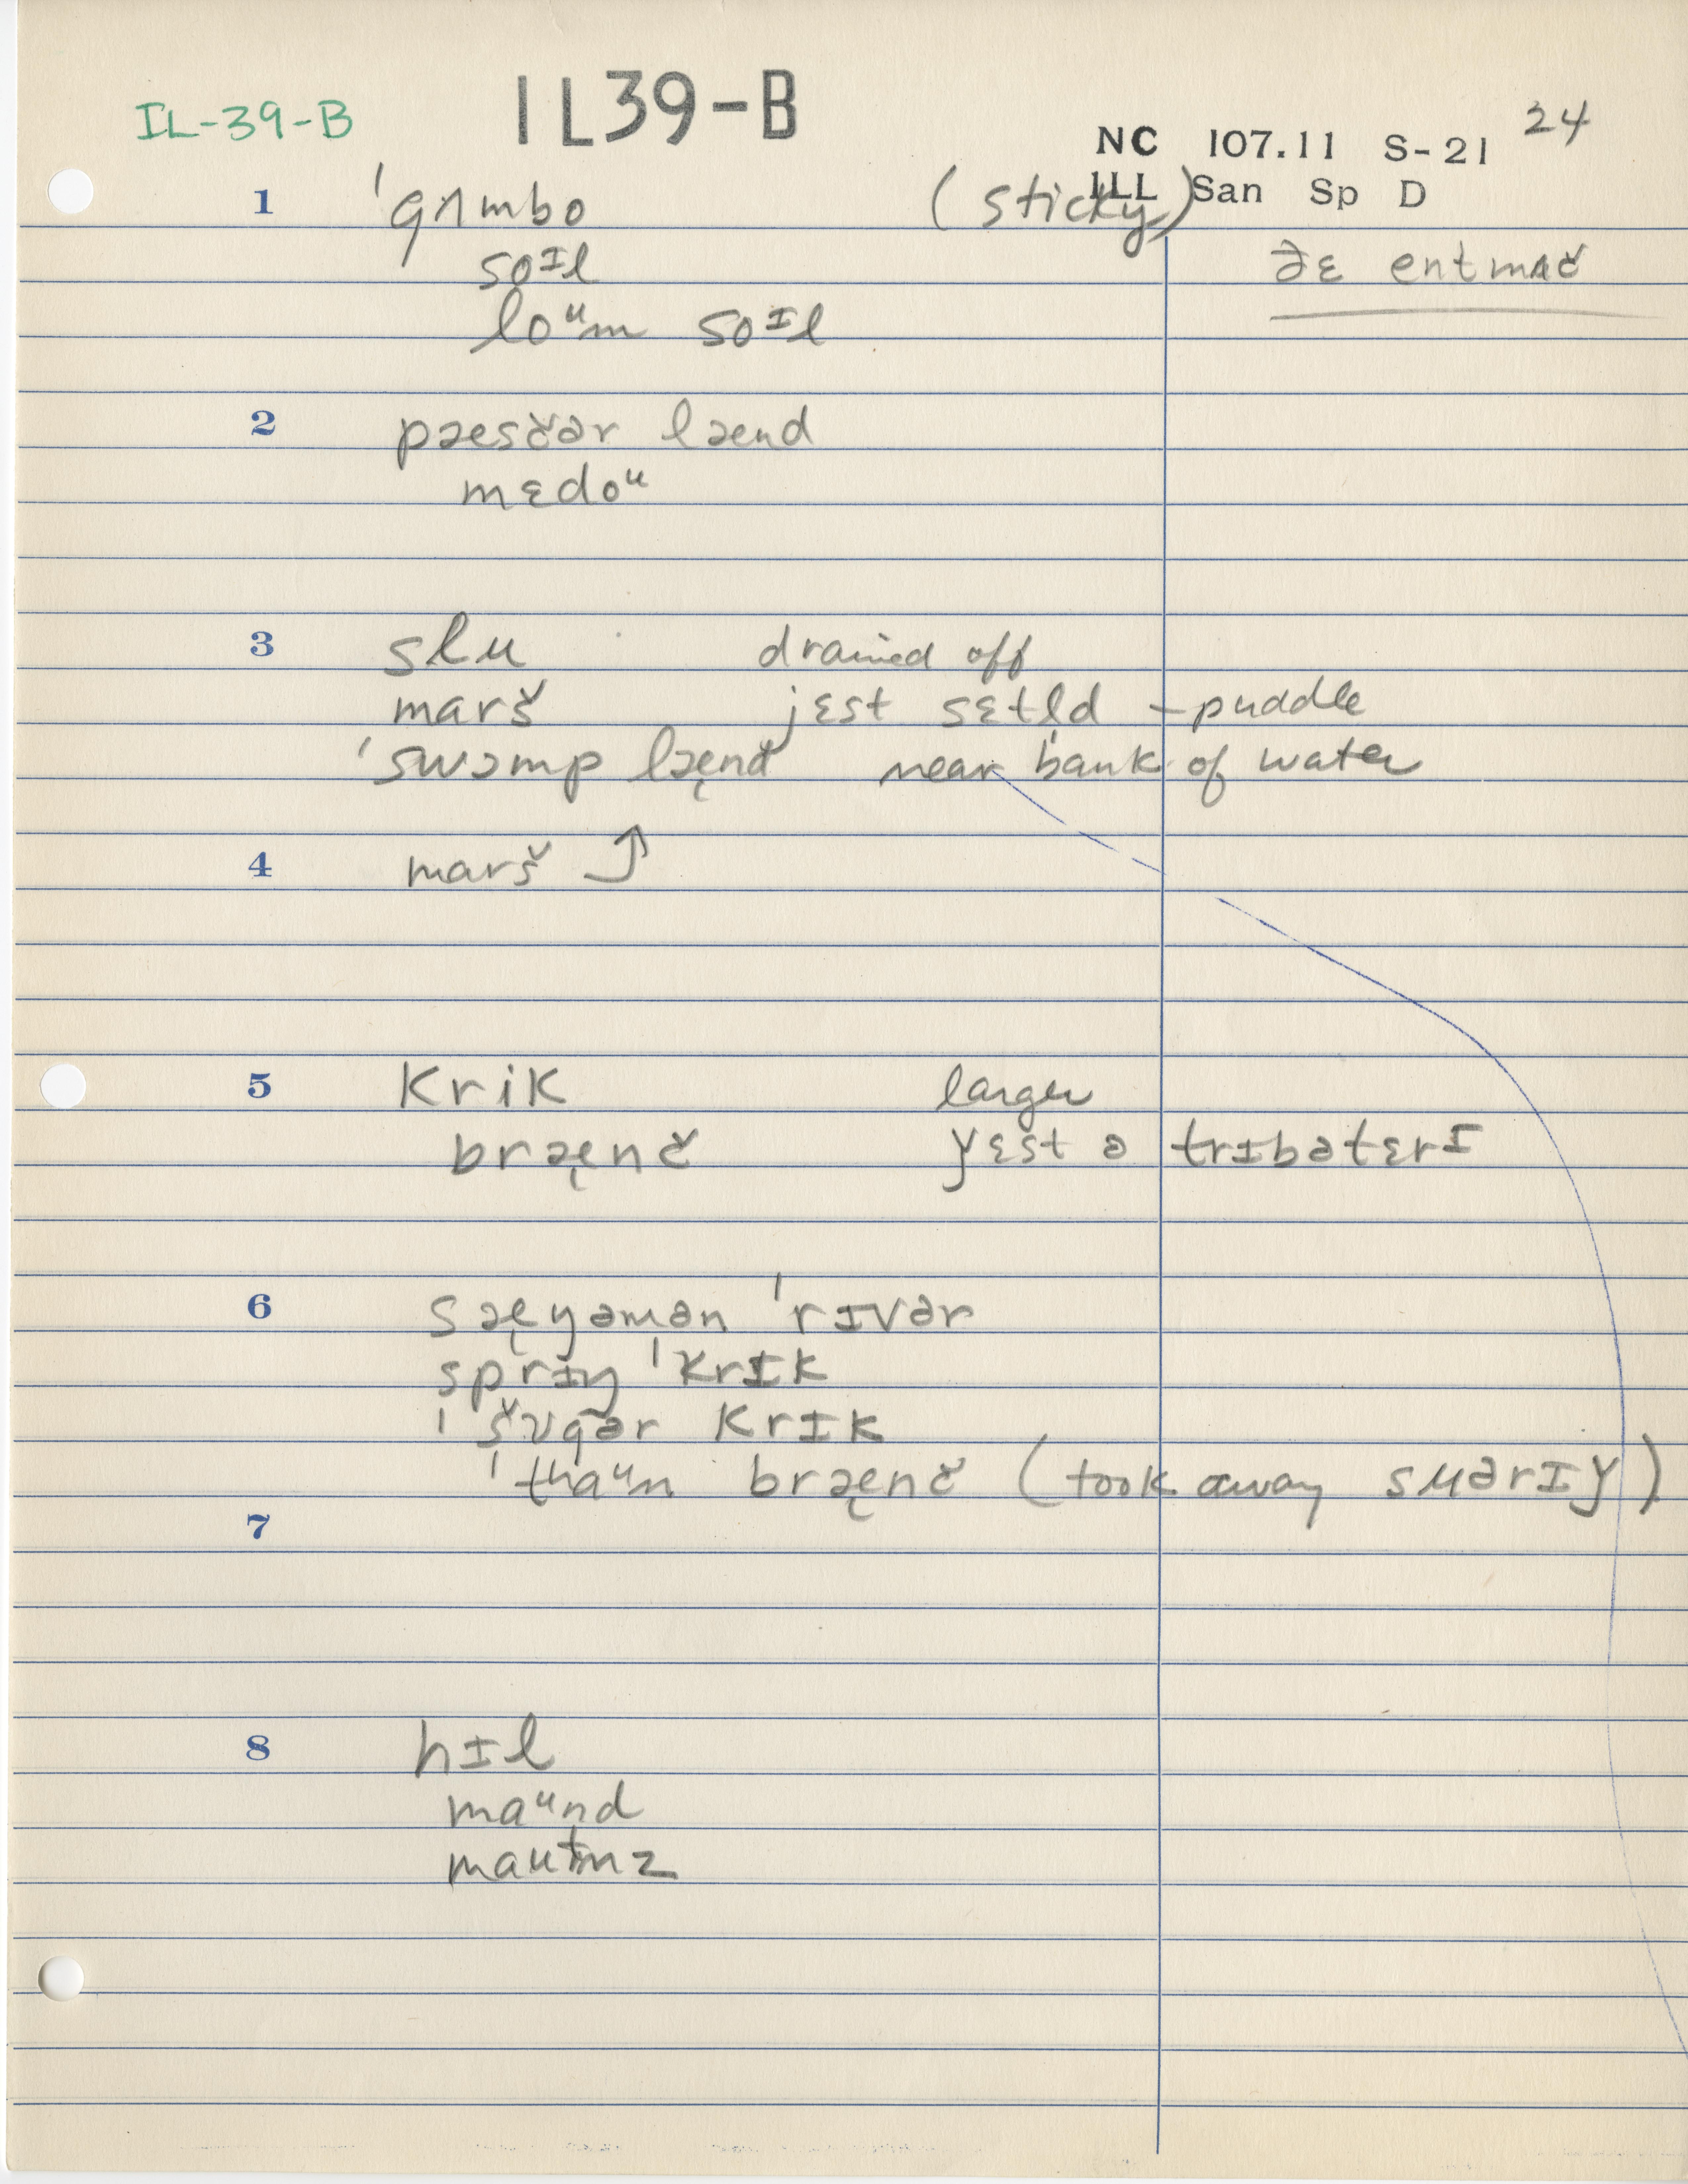 IL-39-B
IL39-B
24
NC 107.11 S-21
ILL San Sp D
1 ˈgʌmbo (sticky)
soɪl
loᵘm soɪl
2 pæsčər lænd
mɛdoᵘ
3 slu drained off
marš jɛst sɛtld – puddle
ˈswɔmp lænd near bank of water
4 marš ⤴
5 krik larger
brænč yɛst ə trɪbətɛrɪ
6 sæŋəmən ˈrɪvər
sprɪŋ ˈkrɪk
ˈšʊgər krɪk
ˈthaᵘn brænč (took away suərɪj)
7
8 hɪl
maᵘnd